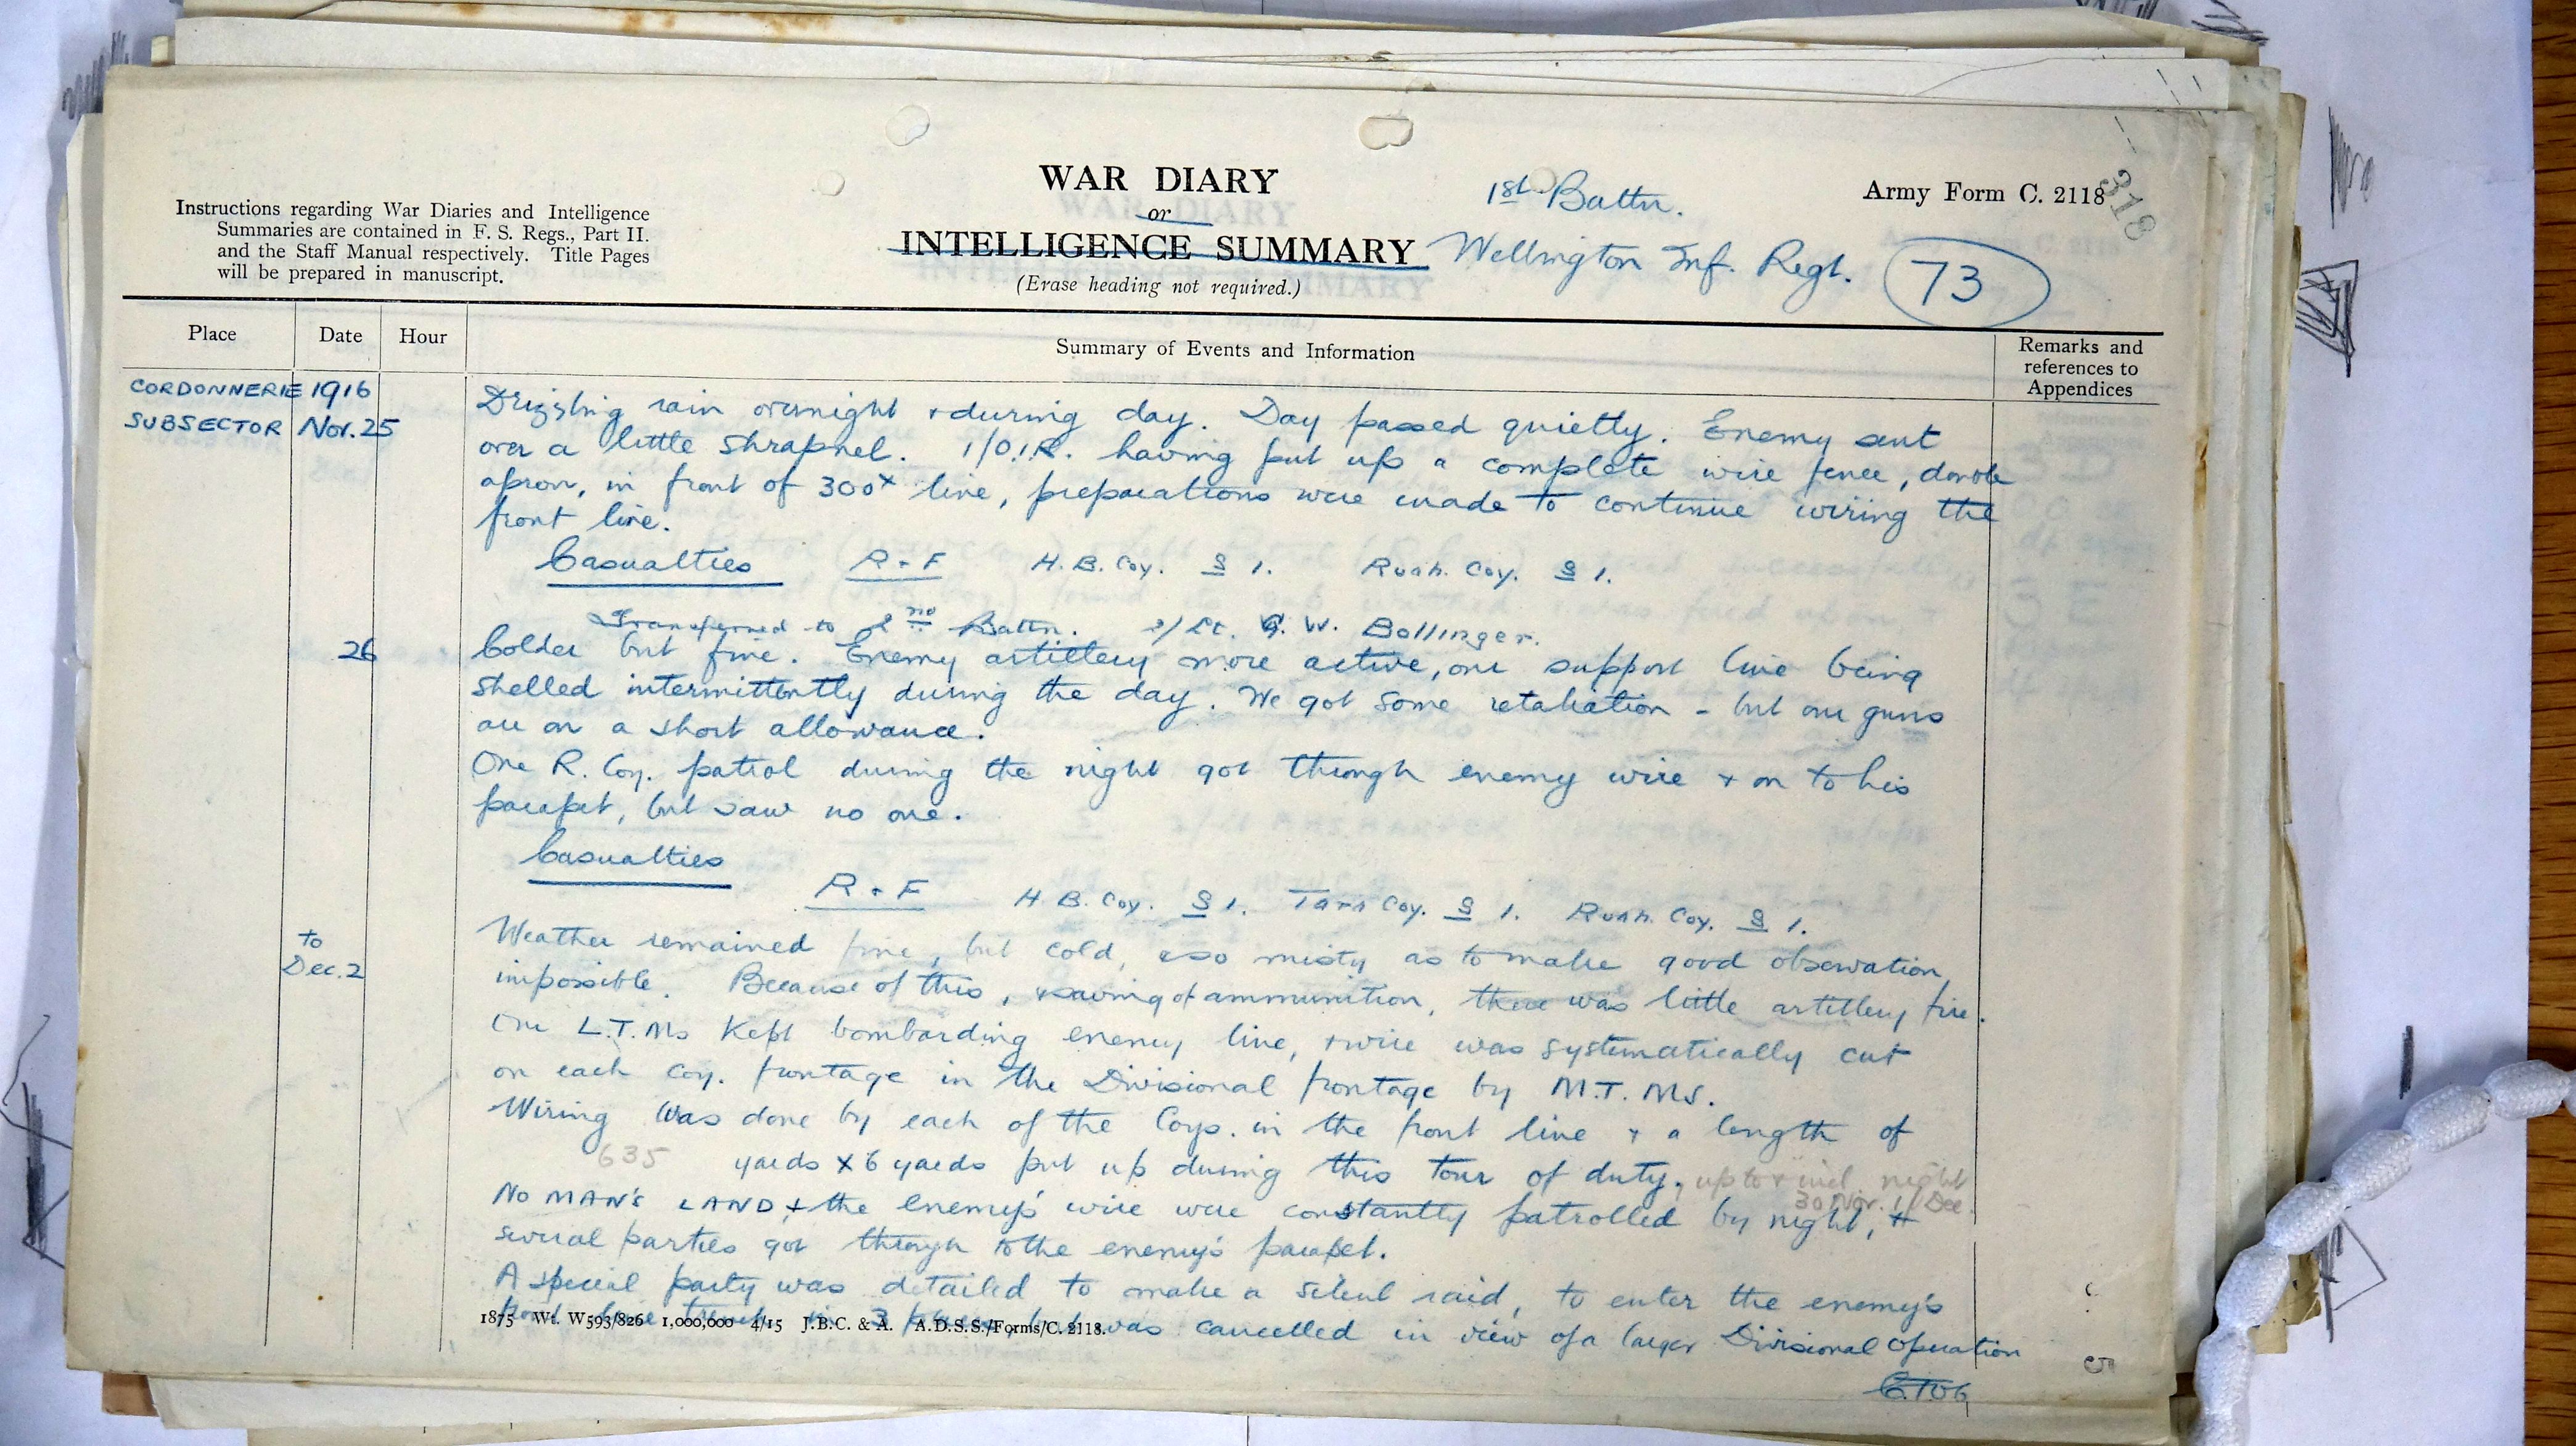 318
WAR DIARY
or
INTELLIGENCE SUMMARY
(Erase heading not required.)
Instructions regarding War Diaries and Intelligence
Summaries are contained in F. S. Regs., Part II.
and the Staff Manual respectively. Title Pages
will be prepared in manuscript.
1st Battn.
Wellington Inf. Regt.
Army Form C. 2118
73
Place
Date
Hour
Summary of Events and Information
Remarks and
references to
Appendices
CORDONNERIE
SUBSECTOR
1916
Nov. 25
Drizzling rain overnight + during day. Day passed quietly. Enemy sent
over a little shrapnel. 1/O.I.R. having put up a complete wire fence, double
apron, in front of 300x line, preparations were made to continue wiring the
front line.
Casualties R + F H.B. Coy. S 1. Ruah. Coy. S 1.
Transferred to 2nd Battn. 2/Lt. G. W. Bollinger.
26
Colder but fine. Enemy artillery more active, our support line being
shelled intermittently during the day. We got some retaliation - but our guns
are on a short allowance.
One R. Coy. patrol during the night got through enemy wire + on to his
parapet, but saw no one.
Casualties
R + F H B. Coy. S 1. Tara Coy. S 1. Ruah. Coy. S 1.
to
Dec. 2
Weather remained fine, but cold, + so misty as to make good observation
impossible. Because of this, + saving of ammunition, there was little artillery fire.
Our L.T.Ms kept bombarding enemy line, + wire was systematically cut
on each coy. frontage in the Divisional frontage by M.T. Ms.
Wiring was done by each of the Coys. in the front line + a length of
635 yards x 6 yards put up during this tour of duty, up to + incl. night
30 Nov. 1/Dec.
NO MAN'S LAND + the enemy's wire were constantly patrolled by night, +
several parties got through to the enemy's parapet.
A special party was detailed to make a silent raid, to enter the enemy's
front line in 3 was cancelled in view of a larger Divisional operation
1875 Wt. W593/826 1,000,000 4/15 J.B.C. & A. A.D.S.S./Forms/C. 2118.